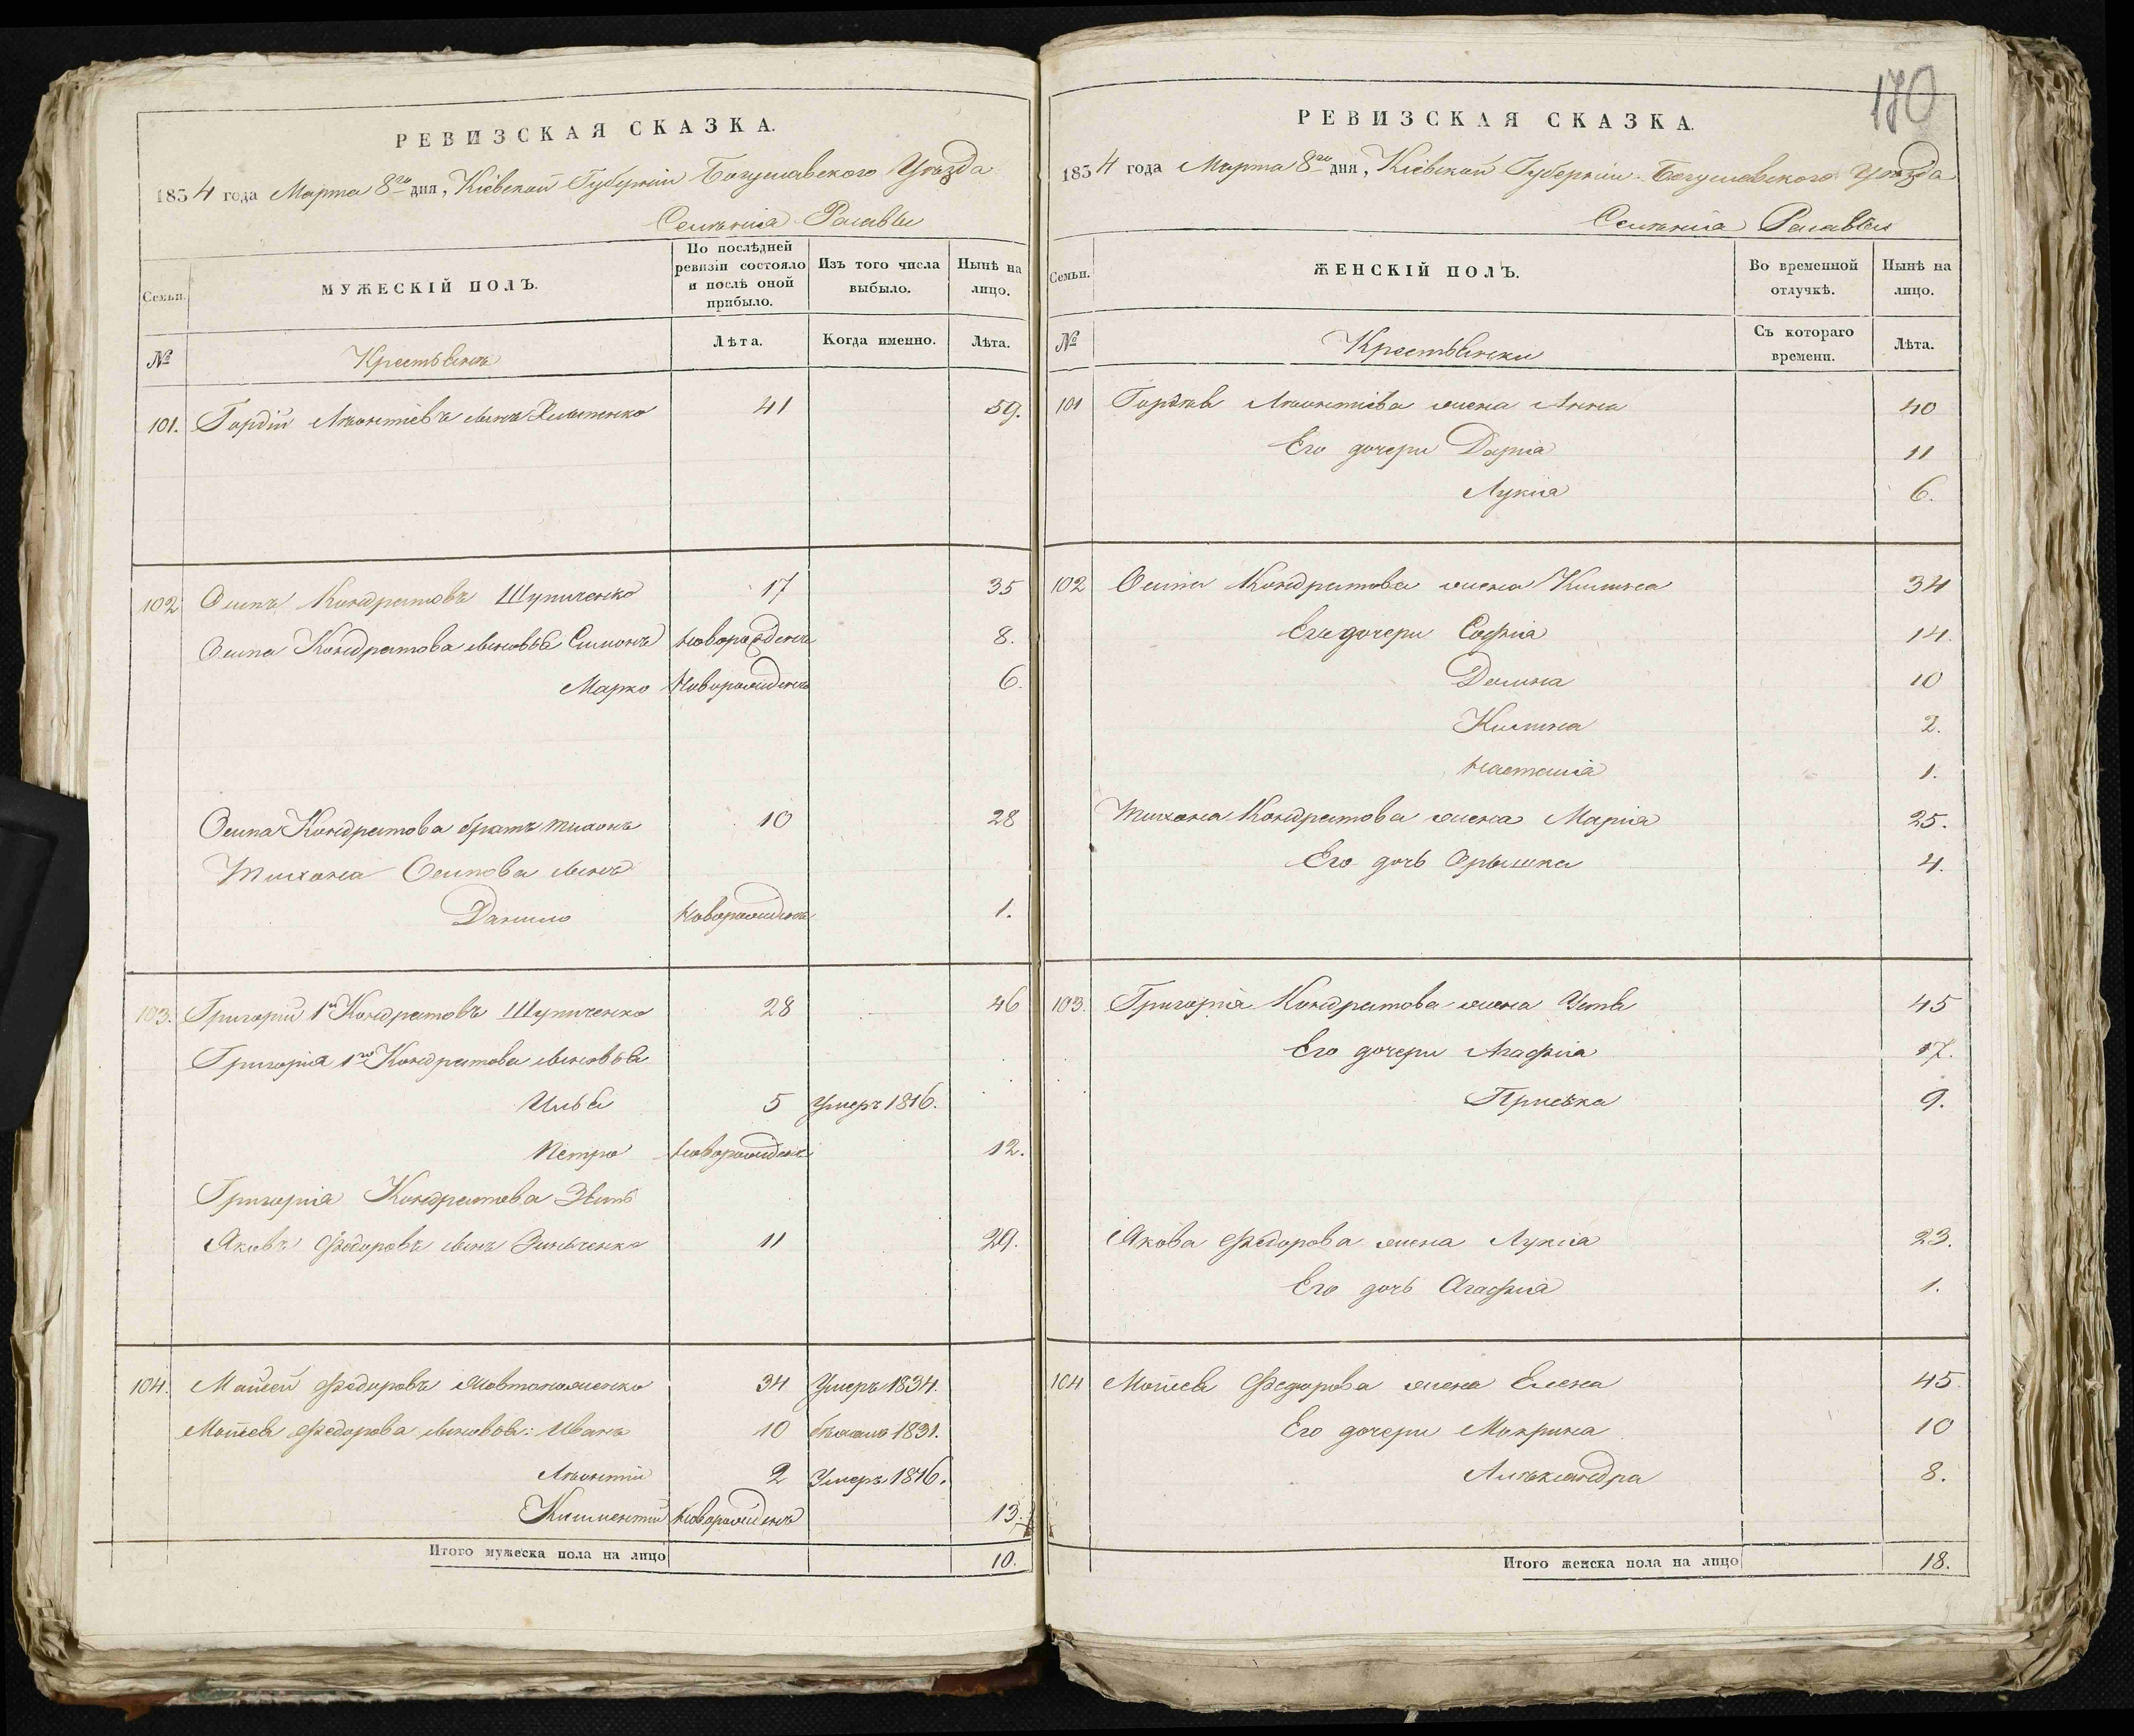 РЕВИЗСКАЯ СКАЗКА.
1834 года Марта 8го дня, Кіевской Губерніи Богуславского Уѣзда
Селенія Расавы
Семьи.
МУЖЕСКІЙ ПОЛЪ.
По послѣдней ревизіи состояло и послѣ оной прибыло.
Изъ того числа выбыло.
Нынѣ на лицо.
№
Крестьянъ
Лѣта.
Когда именно.
Лѣта.
101. Гордій Леонтіевъ сынъ 41 59.
102 Осипъ Кондратовъ Шупиченко 17 35
Осипа Кондратова сыновья Симонъ новорожденъ 8.
Марко новорожденъ 6.
Осипа Кондратова братъ Тихонъ 10 28
Тихона Осипова сынъ
Данило новорожденъ 1.
103. Григорій 1й Кондратовъ Шупиченко 28 46
Григорія 1го Кондратова сыновья
Илья 5 Умеръ 1816.
Петро новорожденъ 12.
Григорія Кондратова Зять
Яковъ Федоровъ сынъ Зинченко 11 29.
104. Мойсей Федоровъ 34 Умеръ 1834.
Мойсея Федорова сыновья: Иванъ 10 бѣжалъ 1831.
Леонтій 2 Умеръ 1816.
Климентій новорожденъ 13.
Итого мужеска пола на лицо 10.
170
РЕВИЗСКАЯ СКАЗКА.
1834 года Марта 8го дня, Кіевской Губерніи Богуславского Уѣзда
Селенія Расавы
Семьи.
ЖЕНСКІЙ ПОЛЪ.
Во временной отлучкѣ.
Нынѣ на лицо.
№
Крестьянки
Съ котораго времени.
Лѣта.
101 Гордѣя Леонтіева жена Анна 40
Его дочери Дарія 11
Лукія 6.
102 Осипа Кондратова жена Килина 34
Его дочери Софія 14.
Домна 10
Килина 2.
Настасія 1.
Тихона Кондратова жена Марія 25.
Его дочь Орышка 4.
103. Григорія Кондратова жена 45
Его дочери Агафія 17.
Приська 9.
Якова Федорова жена Лукія 23.
Его дочь Агафія 1.
104 Мойсея Федорова жена Елена 45
Его дочери Мокрина 10
Александра 8.
Итого женска пола на лицо 18.